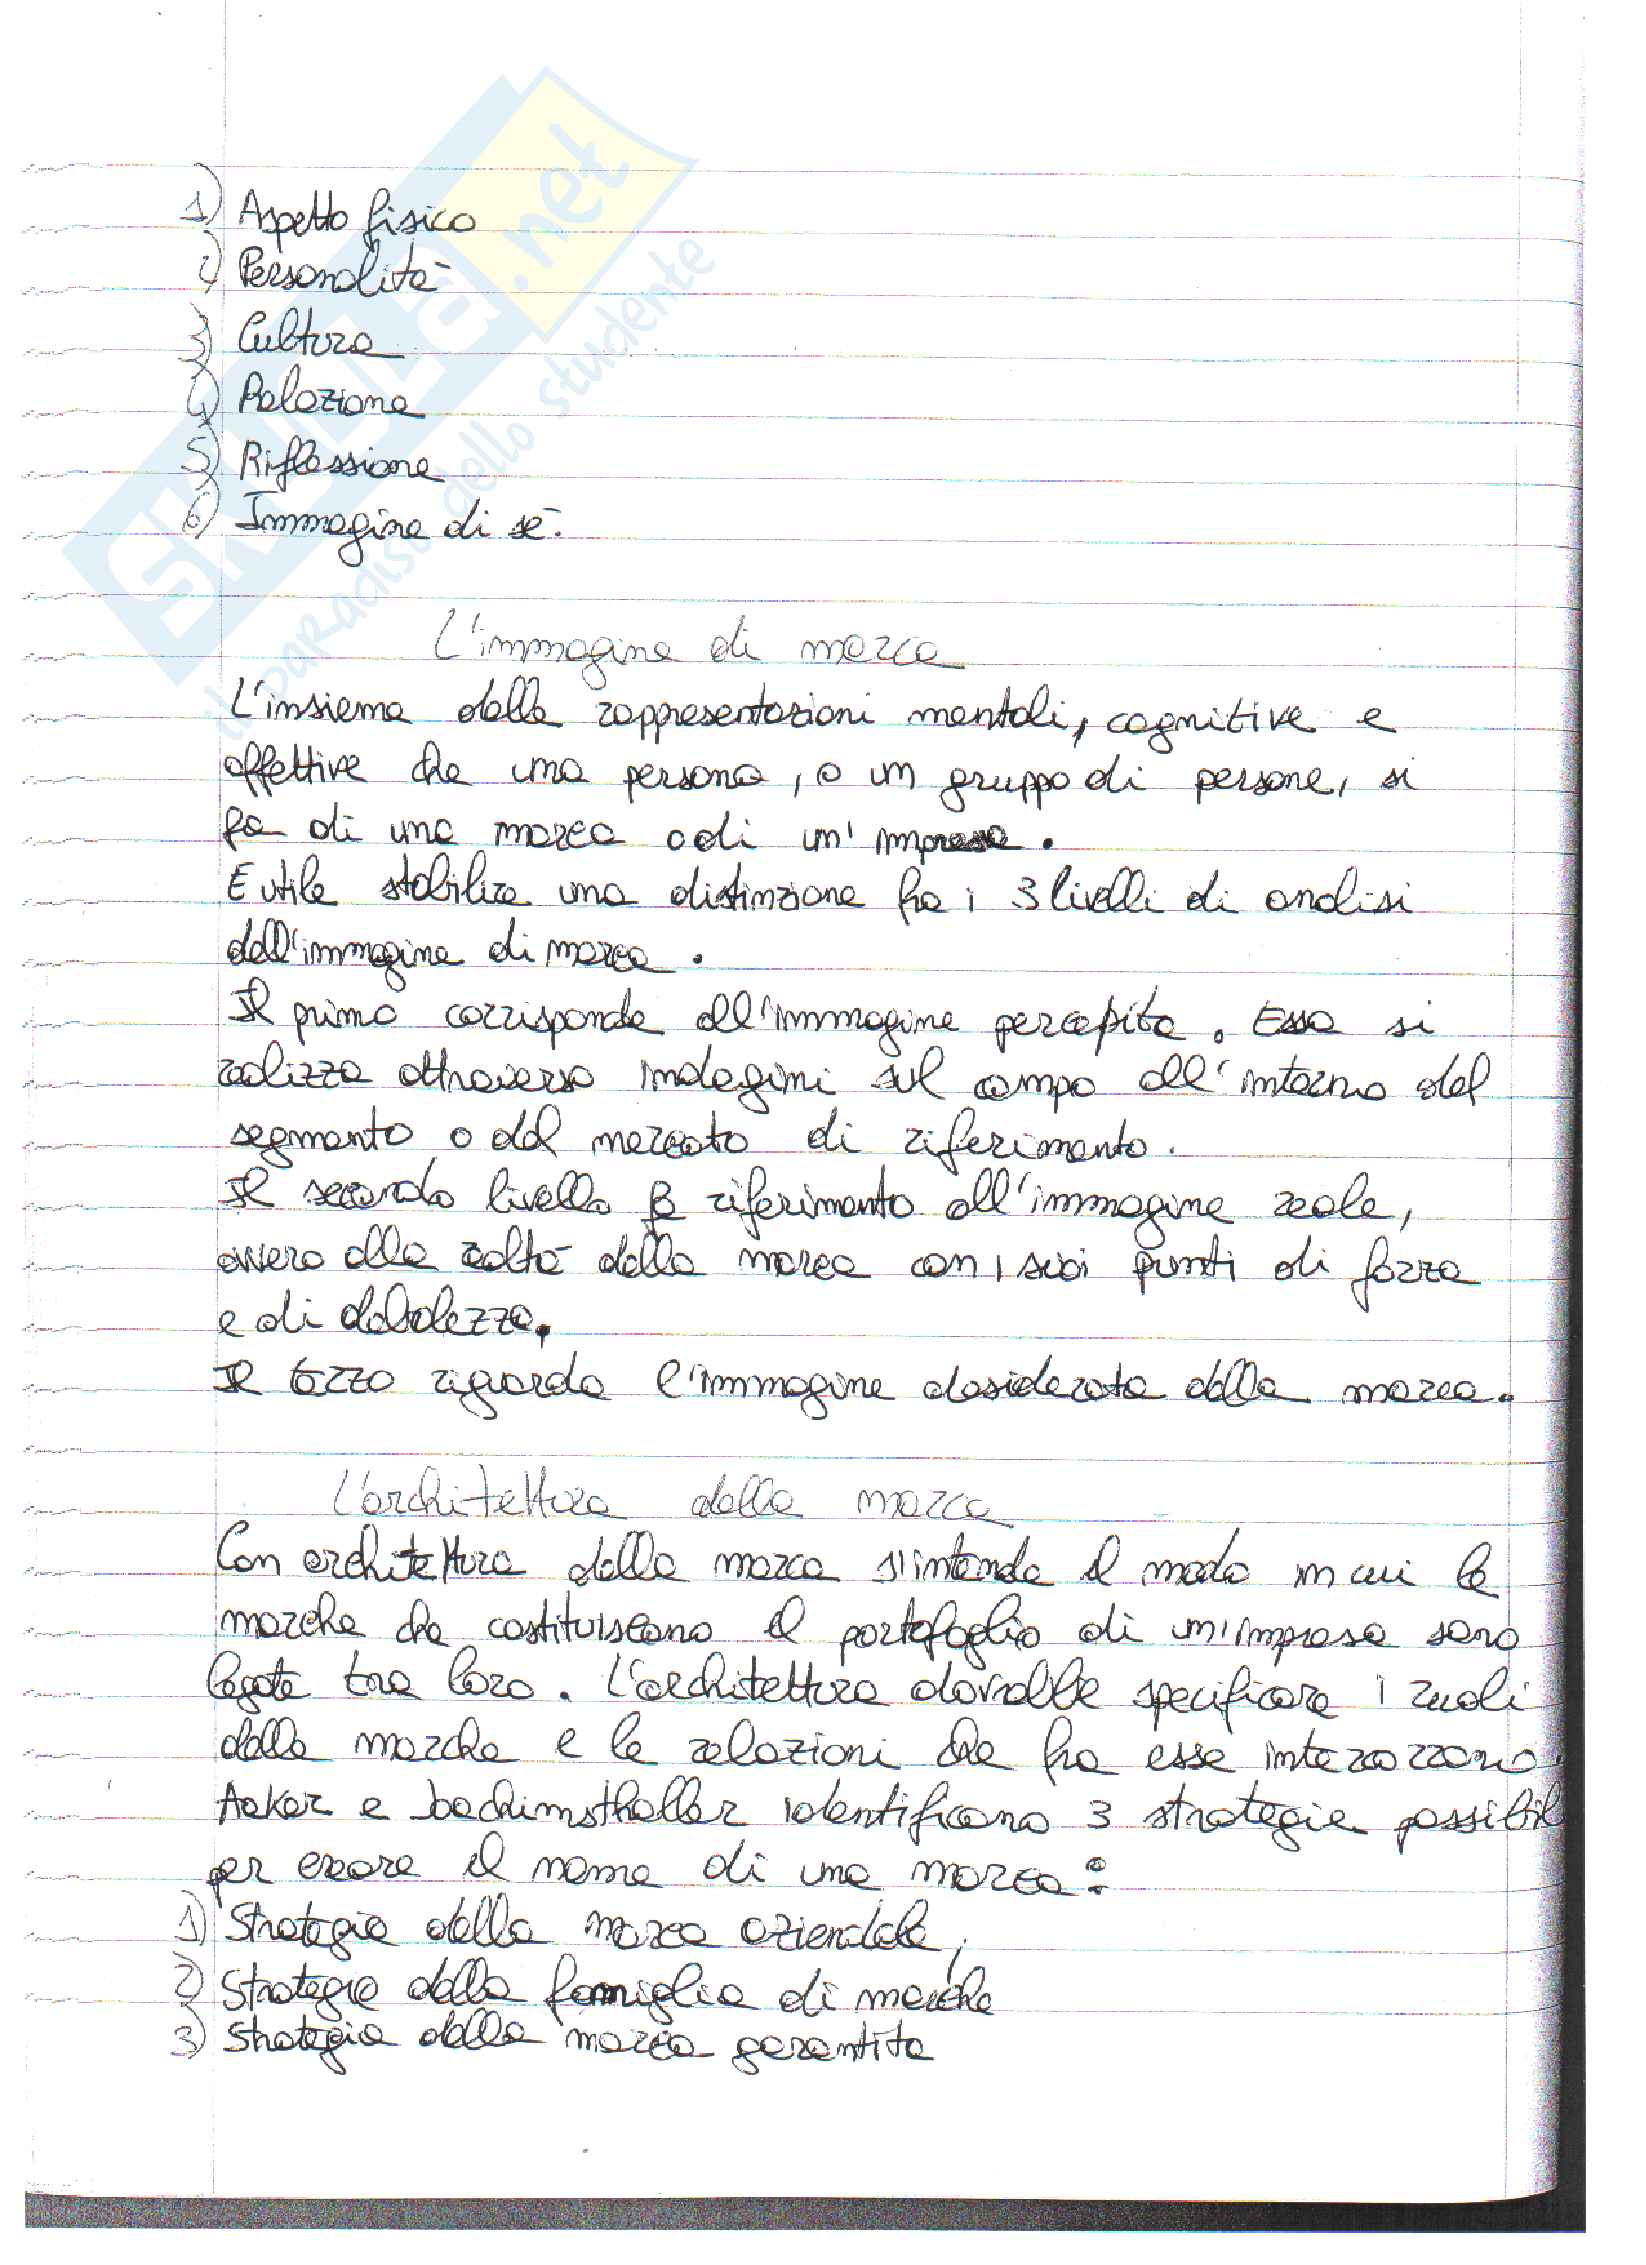 1) Aspetto fisico
2) Personalità
3) Cultura
4) Relazione
5) Riflessione
6) Immagine di sé.
SKUOLA.net
il paradiso dello studente
L'immagine di marca
L'insieme delle rappresentazioni mentali, cognitive e
affettive che una persona, o un gruppo di persone, si
fa di una marca o di un'impresa.
E utile stabilire una distinzione fra i 3 livelli di analisi
dell'immagine di marca.
Il primo corrisponde all'immagine percepita. Essa si
realizza attraverso indagini sul campo all'interno del
segmento o del mercato di riferimento.
Il secondo livello fa riferimento all'immagine reale,
ovvero alla realtà della marca con i suoi punti di forza
e di debolezza.
Il terzo riguarda l'immagine desiderata della marca.
L'architettura della marca
Con architettura della marca s'intende il modo in cui le
marche che costituiscono il portafoglio di un'impresa sono
legate tra loro. L'architettura dovrebbe specificare i ruoli
delle marche e le relazioni che fra esse intercorrono.
Aaker e Joachimsthaller identificano 3 strategie possibil
per creare il nome di una marca:
1) Strategia della marca aziendale,
2) Strategia della famiglia di marche
3) Strategia della marca garantita